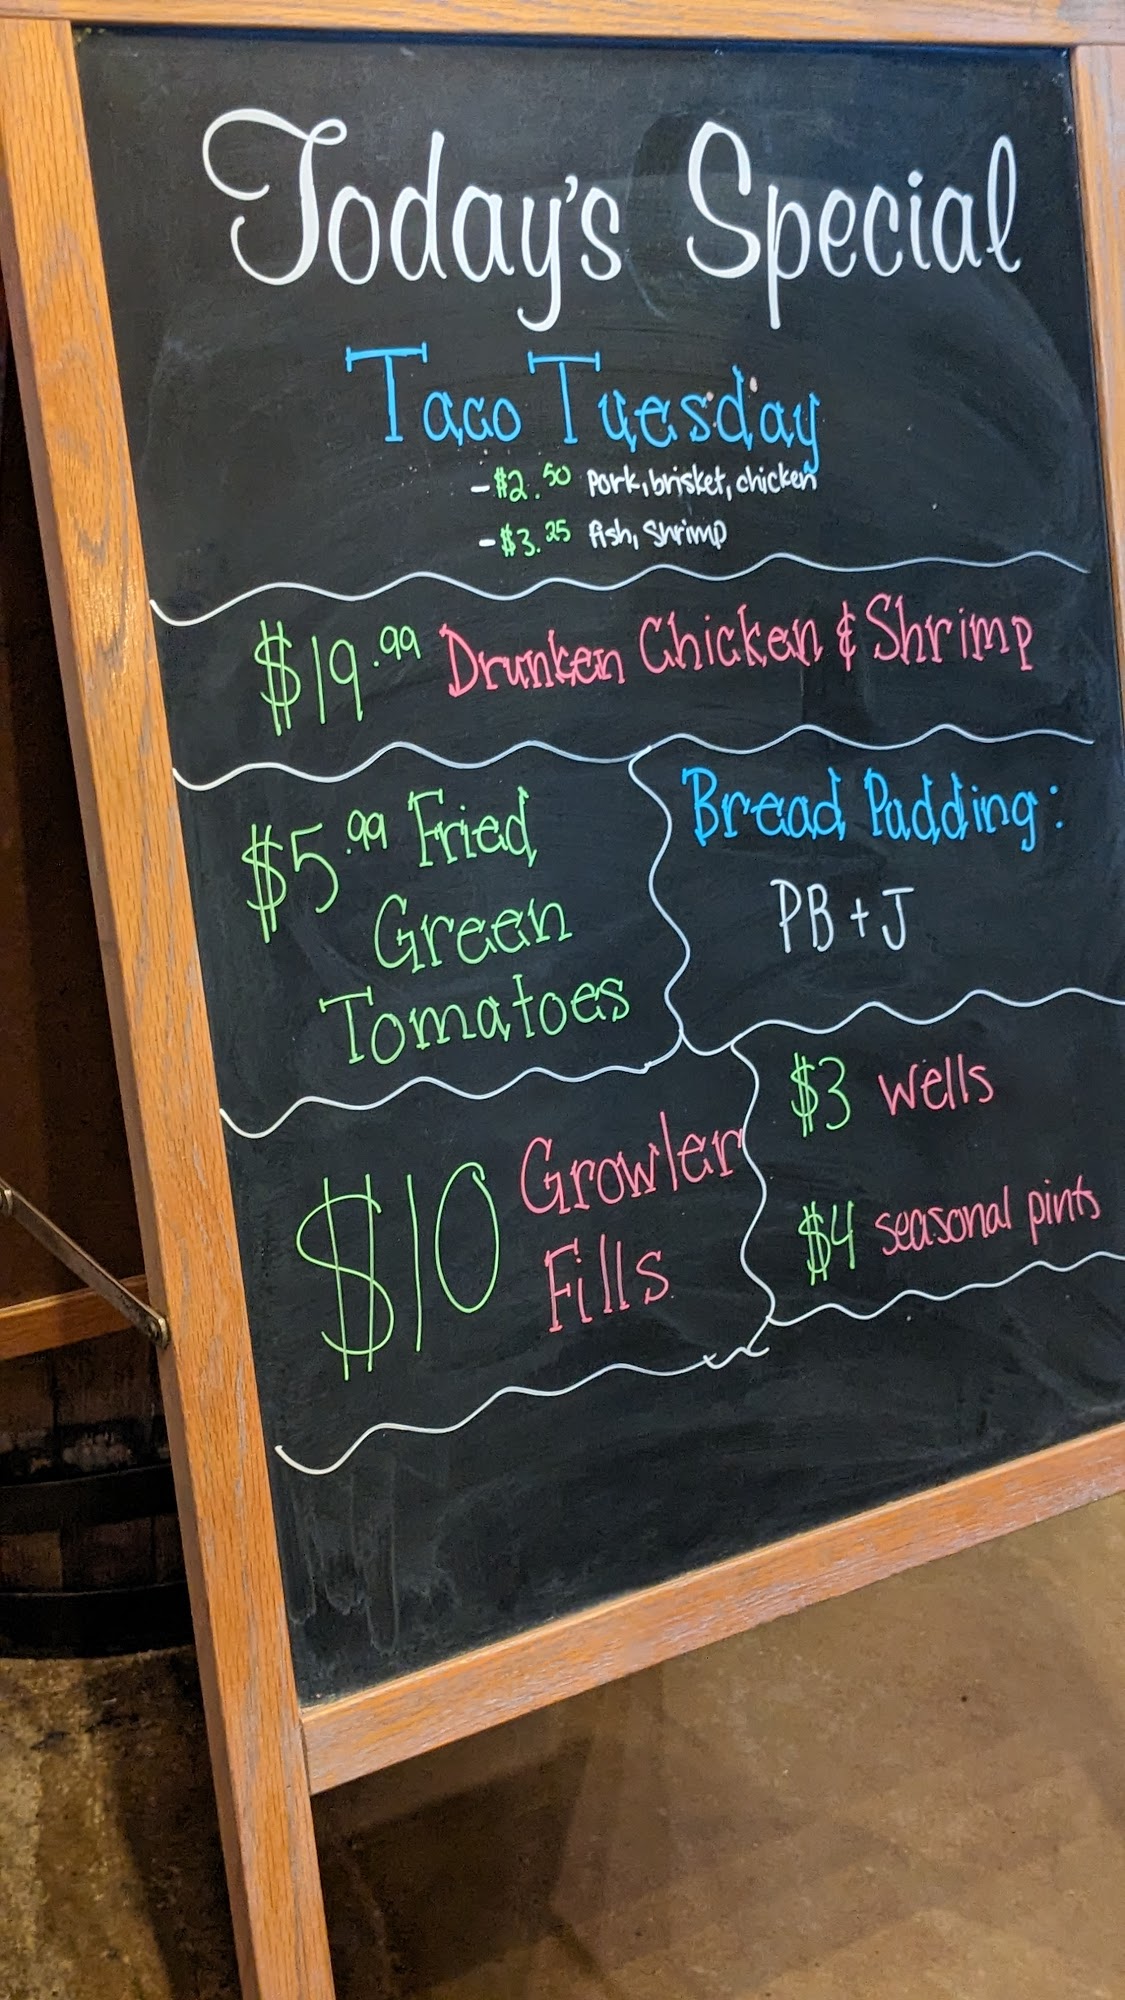 Today's Special
Taco Tuesday
-$2.50 Pork, brisket, chicken
-$3.25 fish, Shrimp
$19.99 Drunken Chicken & Shrimp
$5.99 Fried
Green
Tomatoes
Bread Pudding:
PB + J
$10 Growler
Fills
$3 wells
$4 seasonal pints